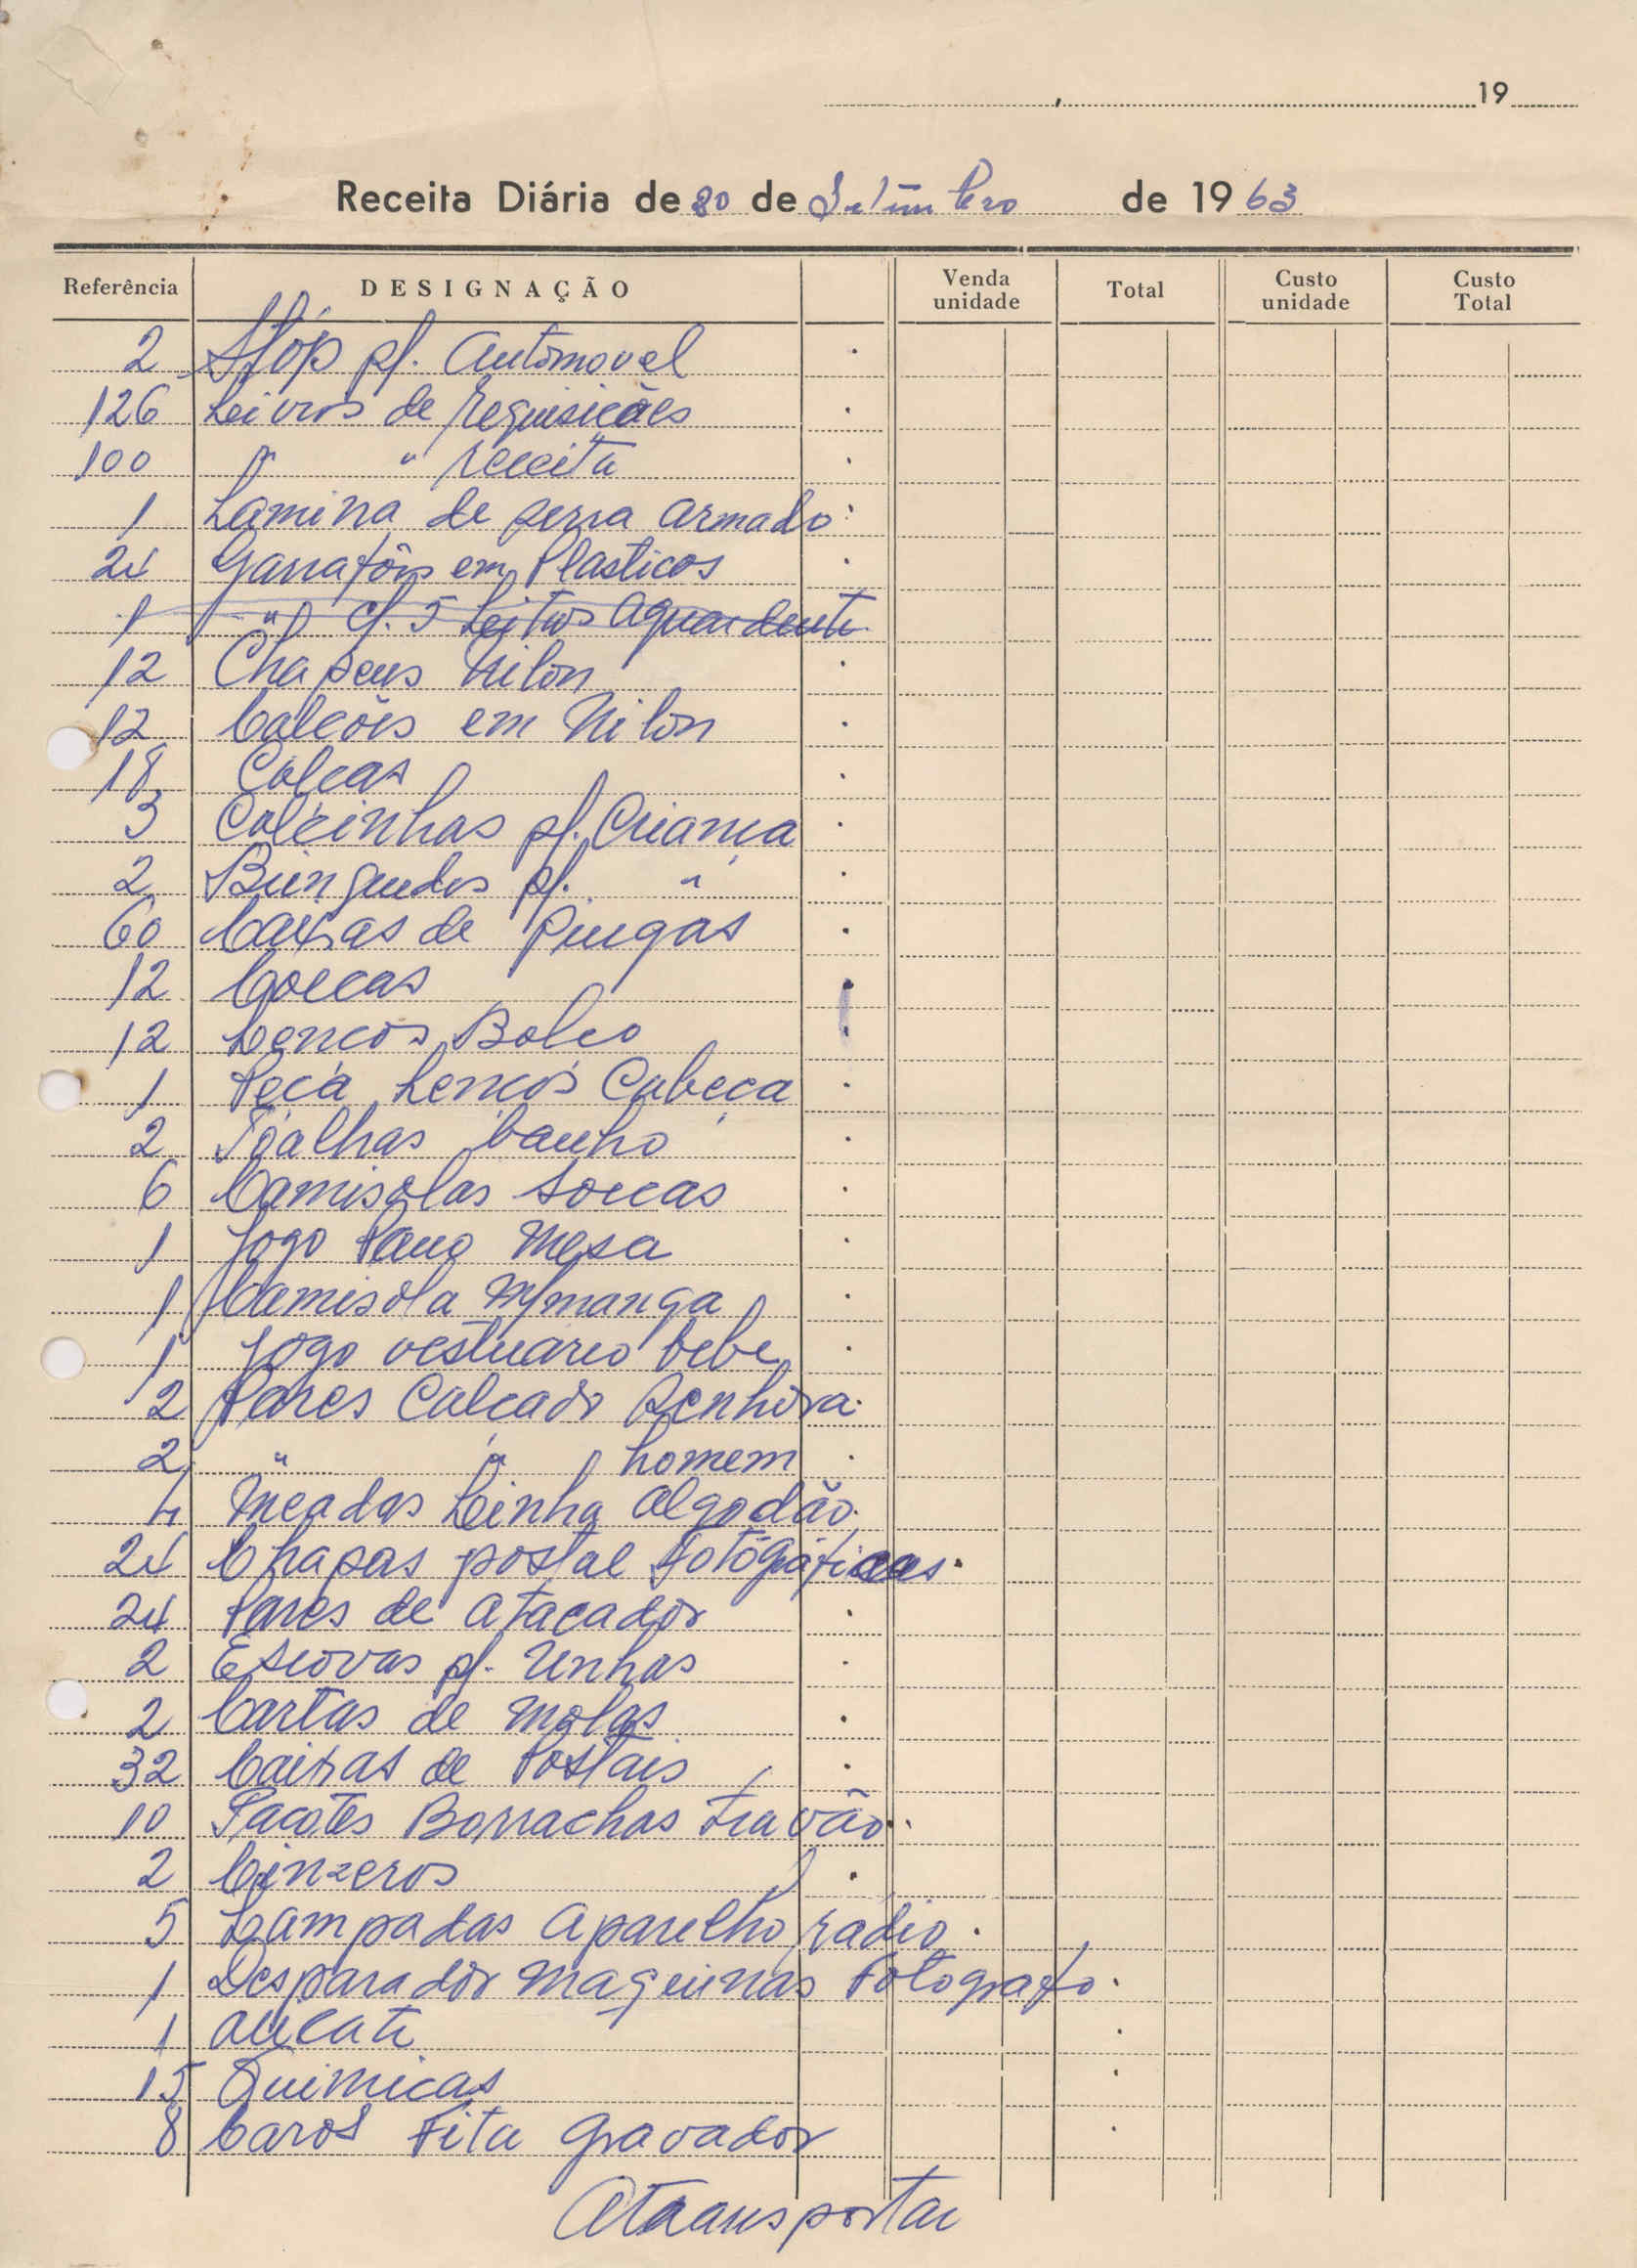 19
Receita Diária de 20 de Setembro de 1963
Referência DESIGNAÇÃO Venda unidade Total Custo unidade Custo Total
2 Stóp p/. Automovel
126 Leivros de Requisicões
100 " " receita
1 Lamina de serra armado
24 Garrafõis em Plasticos
1 " c/. 5 Leitros aguardente
12 Chapeus Nilon
12 Calcõis em Nilon
18 Calcas
3 Calcinhas p/. Criança
2 Brinquedos p/. "
60 Caixas de Piugas
12 Coecas
12 Lencos Bolco
1 Peca Lencos Cabeça
2 Toalhas banho
6 Camisolas
1 Jogo Pano Mesa
1 Camisola m/manga
1 Jogo vestuario bebe
2 Pares Calcado Senhora
2 " " homem
4 Meadas Leinha algodão
24 Chapas postal Fotógráficas
24 Pares de atacador
2 Escovas p/. Unhas
2 Cartas de molas
32 Caixas de Postais
10 Pacotes Borrachas travão
2 Cinzeros
5 Lampadas aparelho rádio
1 Desparador maquinas Fotografo
1 alicate
15 Quimicas
8 Caros Fita gravador
A transportar